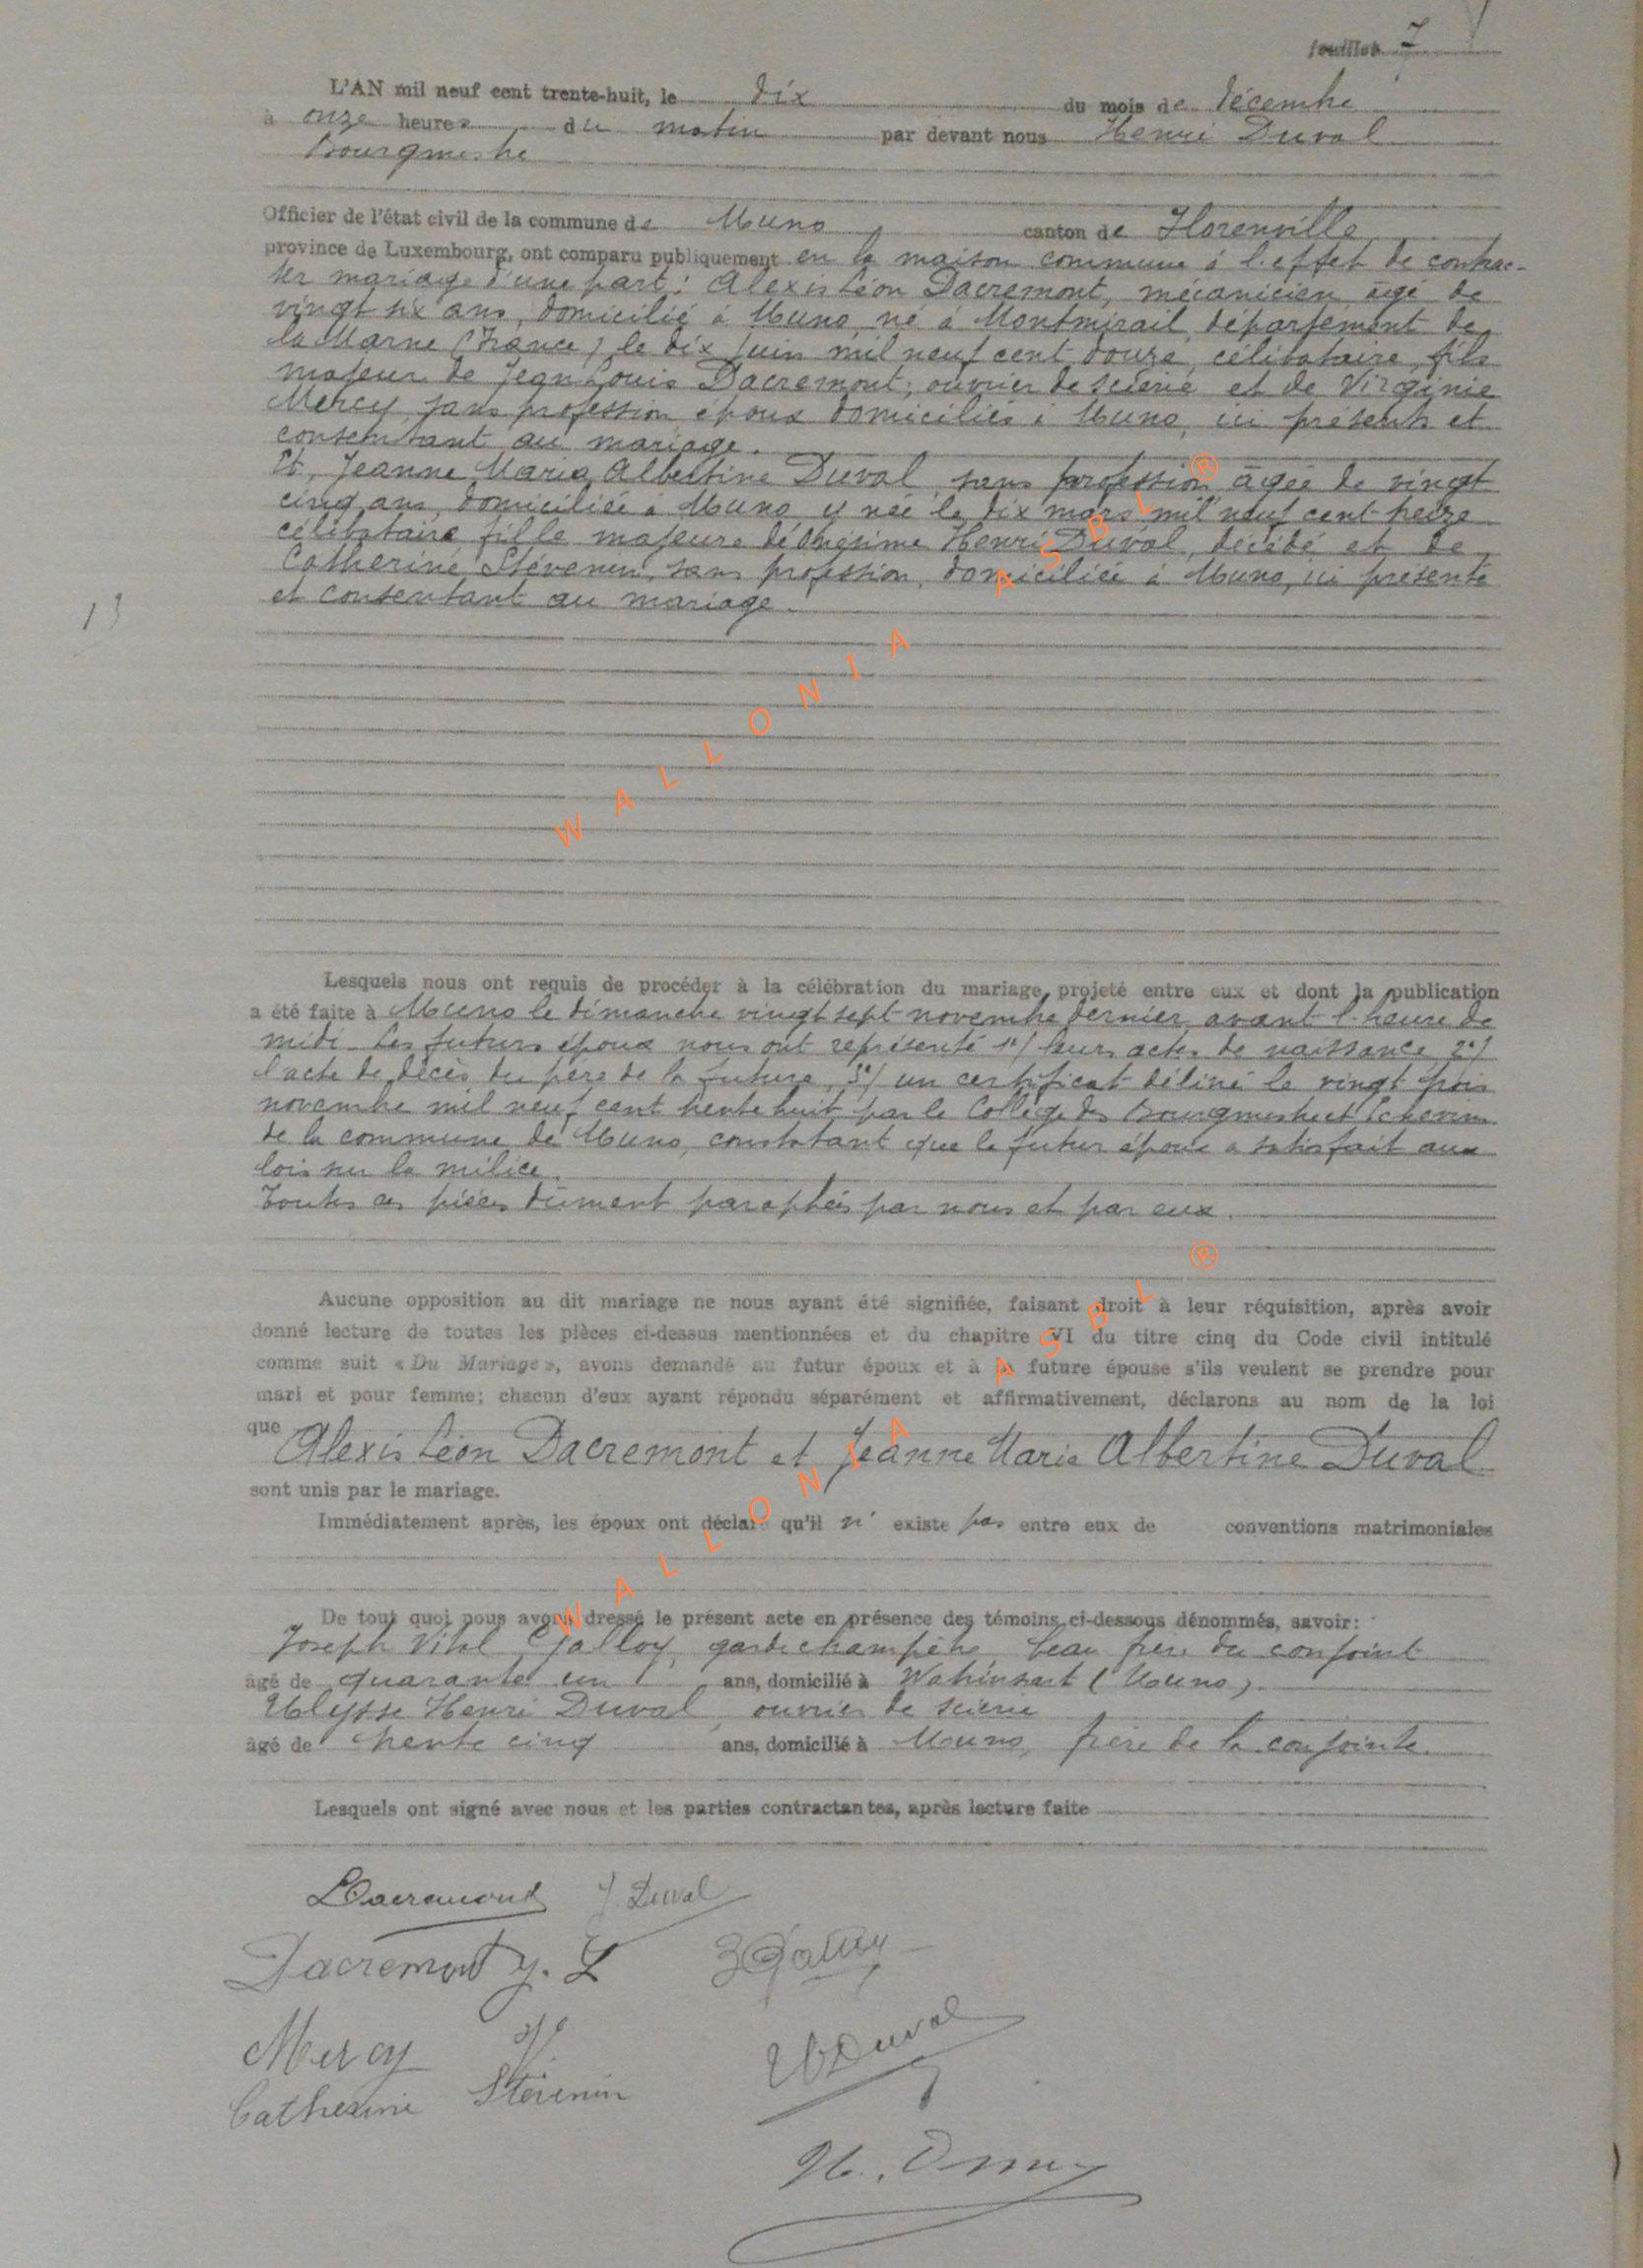 feuillet 7
L'AN mil neuf cent trente-huit, le dix du mois de décembre
à onze heures du matin par devant nous Henri Duval
Bourgmestre
Officier de l'état civil de la commune de Muno canton de Florenville
province de Luxembourg, ont comparu publiquement en la maison commune à l'effet de contrac-
ter mariage d'une part : Alexis Léon Dacremont, mécanicien âgé de
vingt six ans, domicilié à Muno né à Montmirail, département de
la Marne (France) le dix juin mil neuf cent douze, célibataire, fils
majeur de Jean Louis Dacremont, ouvrier de scierie et de Virginie
Mercy sans profession époux domiciliés à Muno, ici présents et
consentant au mariage.
Et, Jeanne Maria Albertine Duval, sans profession, âgée de vingt
cinq ans, domiciliée à Muno y née le dix mars mil neuf cent treize
célibataire fille majeure d'Onésime Henri Duval, décédé et de
Catherine Stévenin, sans profession, domiciliée à Muno, ici présente
et consentant au mariage.
13
WALLONIA ASBL ®
Lesquels nous ont requis de procéder à la célébration du mariage projeté entre eux et dont la publication
a été faite à Muno le dimanche vingt sept novembre dernier avant l'heure de
midi. Les futurs époux nous ont représenté 1°/ leurs actes de naissance 2°/
l'acte de décès du père de la future, 3°/ un certificat délivré le vingt trois
novembre mil neuf cent trente huit par le Collège des Bourgmestre et Echevins
de la commune de Muno, constatant que le futur époux a satisfait aux
lois sur la milice.
Toutes ces pièces dûment paraphées par nous et par eux.
Aucune opposition au dit mariage ne nous ayant été signifiée, faisant droit à leur réquisition, après avoir
donné lecture de toutes les pièces ci-dessus mentionnées et du chapitre VI du titre cinq du Code civil intitulé
comme suit « Du Mariage », avons demandé au futur époux et à la future épouse s'ils veulent se prendre pour
mari et pour femme; chacun d'eux ayant répondu séparément et affirmativement, déclarons au nom de la loi
que Alexis Léon Dacremont et Jeanne Maria Albertine Duval
sont unis par le mariage.
Immédiatement après, les époux ont déclaré qu'il n' existe pas entre eux de conventions matrimoniales
WALLONIA ASBL ®
De tout quoi nous avons dressé le présent acte en présence des témoins ci-dessous dénommés, savoir:
Joseph Vital Galloy, garde champêtre, beau frère du conjoint
âgé de quarante un ans, domicilié à Wahinsart (Muno).
Ulysse Henri Duval, ouvrier de scierie
âgé de trente cinq ans, domicilié à Muno, frère de la conjointe.
Lesquels ont signé avec nous et les parties contractantes, après lecture faite
LDacremont J. Duval
Dacremont J. L
Mercy
Catherine Stévenin
U Duval